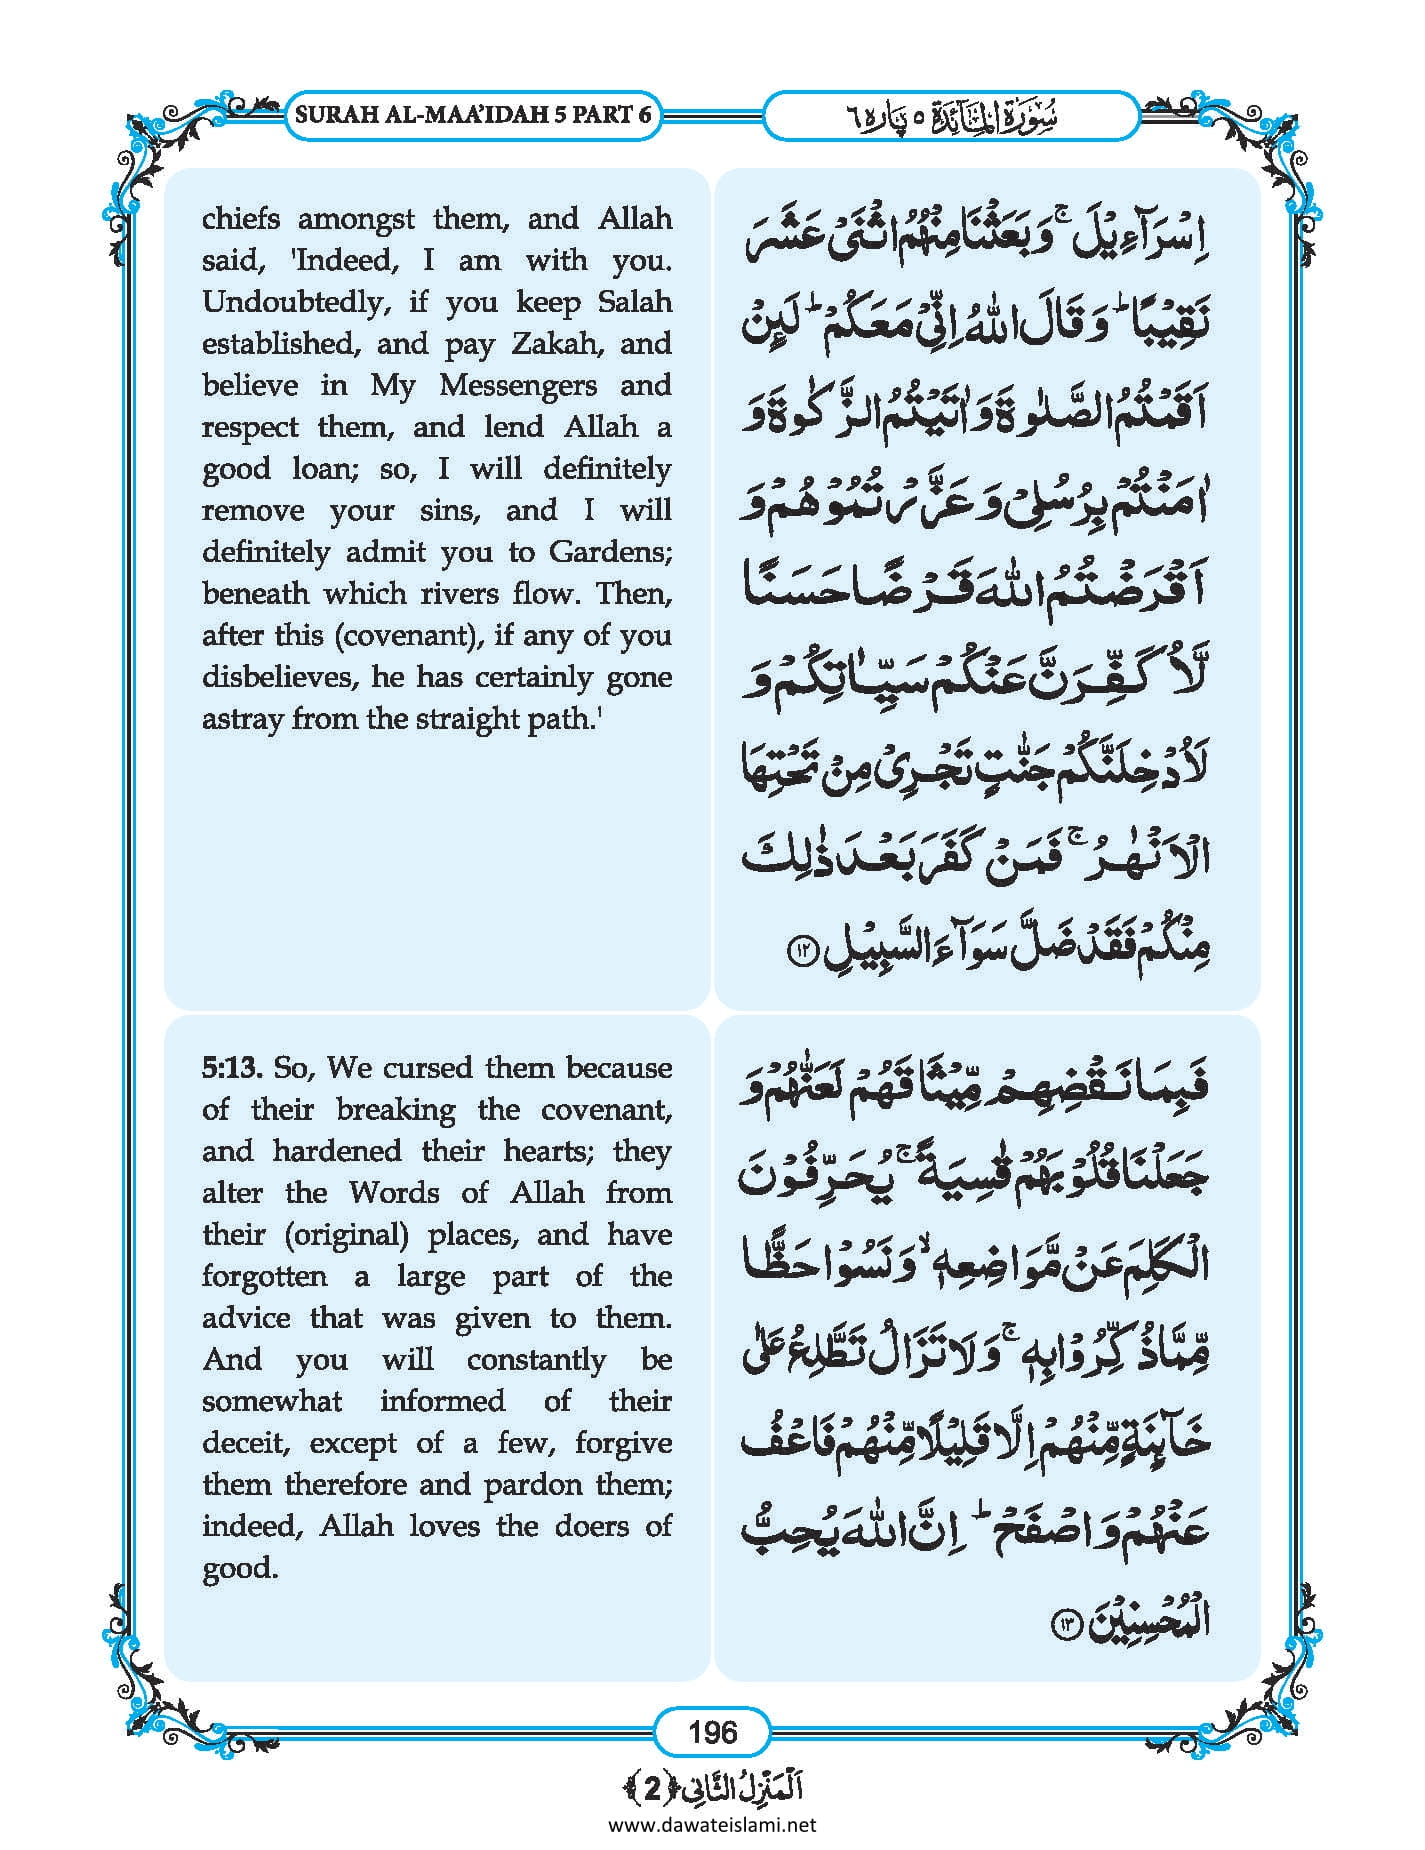 SURAH AL-MAA'IDAH 5 PART 6
سُوْرَۃُ الْمَآئِدَۃ ٥ پَارہ ٦
chiefs amongst them, and Allah
said, 'Indeed, I am with you.
Undoubtedly, if you keep Salah
established, and pay Zakah, and
believe in My Messengers and
respect them, and lend Allah a
good loan; so, I will definitely
remove your sins, and I will
definitely admit you to Gardens;
beneath which rivers flow. Then,
after this (covenant), if any of you
disbelieves, he has certainly gone
astray from the straight path.'
اِسْرَآءِیْلَ ۚ وَ بَعَثْنَا مِنْهُمُ اثْنَیْ عَشَرَ
نَقِیْبًا ؕ وَ قَالَ اللّٰهُ اِنِّیْ مَعَكُمْ ؕ لَىِٕنْ
اَقَمْتُمُ الصَّلٰوةَ وَ اٰتَیْتُمُ الزَّكٰوةَ وَ
اٰمَنْتُمْ بِرُسُلِیْ وَ عَزَّرْتُمُوْهُمْ وَ
اَقْرَضْتُمُ اللّٰهَ قَرْضًا حَسَنًا
لَّاُكَفِّرَنَّ عَنْكُمْ سَیِّاٰتِكُمْ وَ
لَاُدْخِلَنَّكُمْ جَنّٰتٍ تَجْرِیْ مِنْ تَحْتِهَا
الْاَنْهٰرُ ۚ فَمَنْ كَفَرَ بَعْدَ ذٰلِكَ
مِنْكُمْ فَقَدْ ضَلَّ سَوَآءَ السَّبِیْلِ ﴿۱۲﴾
5:13. So, We cursed them because
of their breaking the covenant,
and hardened their hearts; they
alter the Words of Allah from
their (original) places, and have
forgotten a large part of the
advice that was given to them.
And you will constantly be
somewhat informed of their
deceit, except of a few, forgive
them therefore and pardon them;
indeed, Allah loves the doers of
good.
فَبِمَا نَقْضِهِمْ مِّیْثَاقَهُمْ لَعَنّٰهُمْ وَ
جَعَلْنَا قُلُوْبَهُمْ قٰسِیَةً ۚ یُحَرِّفُوْنَ
الْكَلِمَ عَنْ مَّوَاضِعِهٖ ۙ وَ نَسُوْا حَظًّا
مِّمَّا ذُكِّرُوْا بِهٖ ۚ وَ لَا تَزَالُ تَطَّلِعُ عَلٰى
خَآىِٕنَةٍ مِّنْهُمْ اِلَّا قَلِیْلًا مِّنْهُمْ فَاعْفُ
عَنْهُمْ وَ اصْفَحْ ؕ اِنَّ اللّٰهَ یُحِبُّ
الْمُحْسِنِیْنَ ﴿۱۳﴾
196
اَلْمَنْزِلُ الثَّانِی ﴿2﴾
www.dawateislami.net